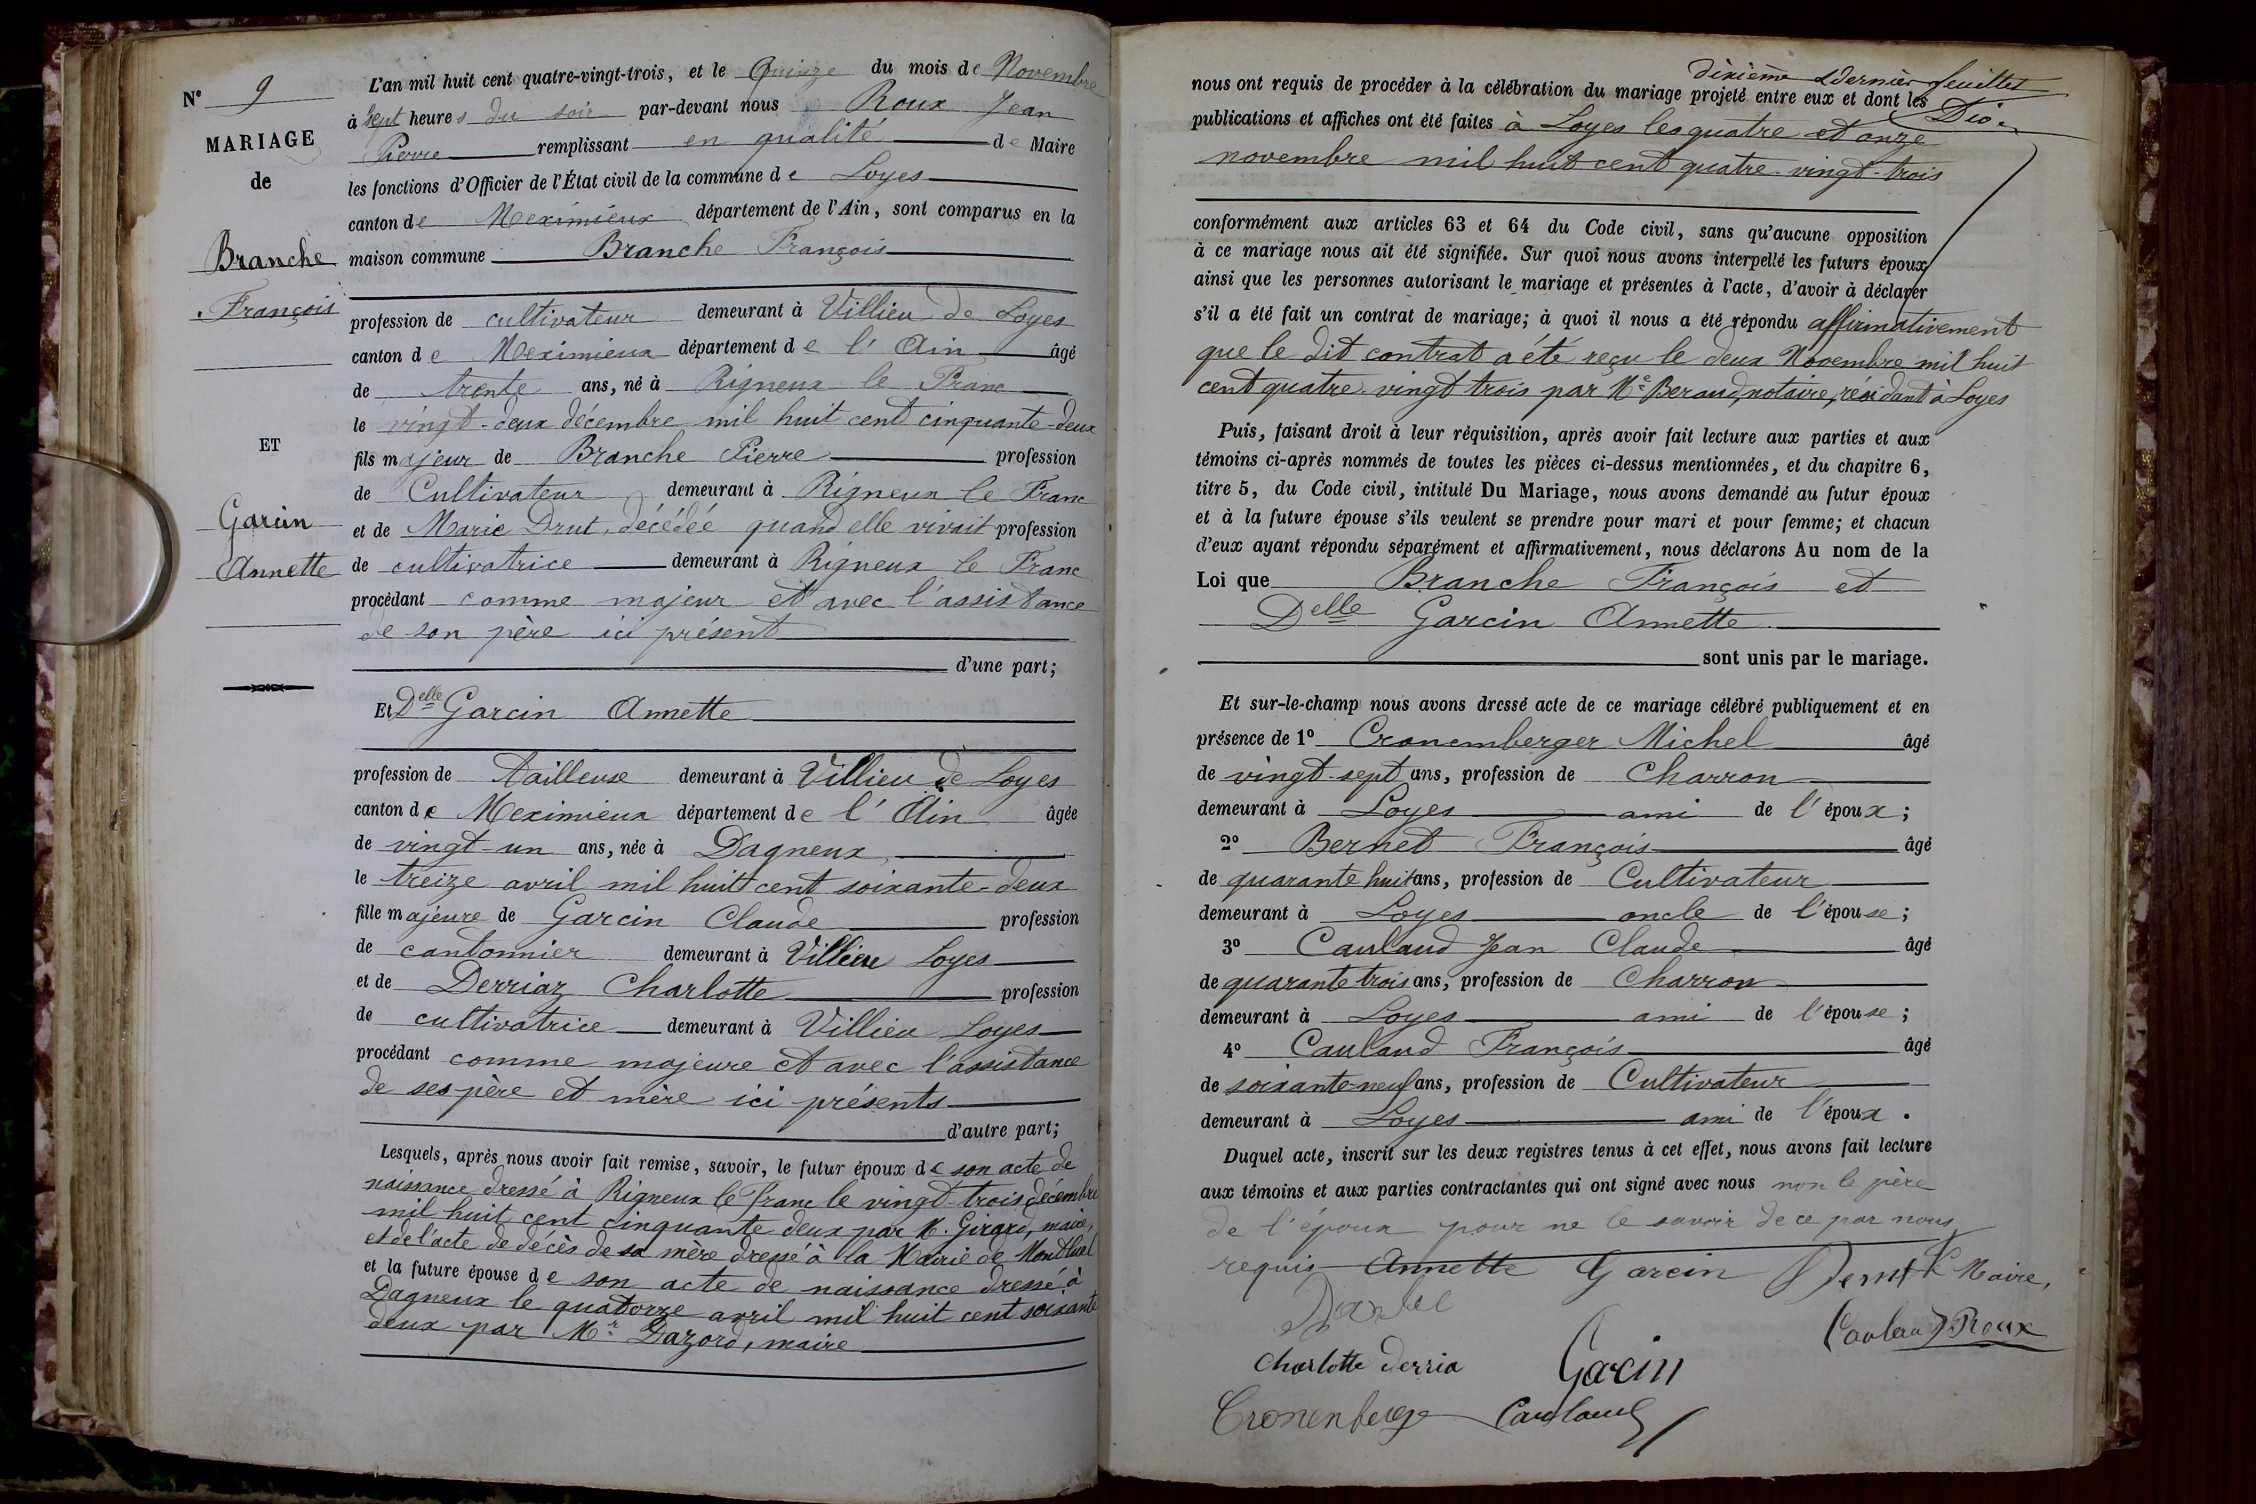 N° 9
MARIAGE
de
Branche
François
ET
Garcin
Annette
L'an mil huit cent quatre-vingt-trois, et le Quinze du mois de Novembre
à sept heures du soir par-devant nous Roux Jean
Pierre remplissant en qualité de Maire
les fonctions d'Officier de l'État civil de la commune de Loyes
canton de Meximieux département de l'Ain, sont comparus en la
maison commune Branche François
profession de cultivateur demeurant à Villieu de Loyes
canton de Meximieux département de l'Ain âgé
de trente ans, né à Rigneux le Franc
le vingt-deux décembre mil huit cent cinquante-deux
fils majeur de Branche Pierre profession
de Cultivateur demeurant à Rigneux le Franc
et de Marie Drut, décédée quand elle vivait profession
de cultivatrice demeurant à Rigneux le Franc
procédant comme majeur et avec l'assistance
de son père ici présent
d'une part;
Et Delle Garcin Annette
profession de tailleuse demeurant à Villieu de Loyes
canton de Meximieux département de l'Ain âgée
de vingt-un ans, née à Dagneux,
le treize avril mil huit cent soixante-deux
fille majeure de Garcin Claude profession
de cantonnier demeurant à Villieu Loyes
et de Derriaz Charlotte profession
de cultivatrice demeurant à Villieu Loyes
procédant comme majeure et avec l'assistance
de ses père et mère ici présents
d'autre part;
Lesquels, après nous avoir fait remise, savoir, le futur époux de son acte de
naissance dressé à Rigneux le franc le vingt-trois décembre
mil huit cent cinquante deux par M. Girard, maire,
et de l'acte de décès de sa mère dressé à la Mairie de Montluel
et la future épouse de son acte de naissance dressé à
Dagneux le quatorze avril mil huit cent soixante
deux par Mr Dazord, maire
dixième & dernier feuillet
nous ont requis de procéder à la célébration du mariage projeté entre eux et dont les
publications et affiches ont été faites à Loyes les quatre et onze
novembre mil huit cent quatre-vingt-trois
conformément aux articles 63 et 64 du Code civil, sans qu'aucune opposition
à ce mariage nous ait été signifiée. Sur quoi nous avons interpellé les futurs époux
ainsi que les personnes autorisant le mariage et présentes à l'acte, d'avoir à déclarer
s'il a été fait un contrat de mariage; à quoi il nous a été répondu affirmativement
que le dit contrat a été reçu le deux Novembre mil huit
cent quatre-vingt trois par Me Beraud, notaire, résidant à Loyes
Puis, faisant droit à leur réquisition, après avoir fait lecture aux parties et aux
témoins ci-après nommés de toutes les pièces ci-dessus mentionnées, et du chapitre 6,
titre 5, du Code civil, intitulé Du Mariage, nous avons demandé au futur époux
et à la future épouse s'ils veulent se prendre pour mari et pour femme; et chacun
d'eux ayant répondu séparément et affirmativement, nous déclarons Au nom de la
Loi que Branche François et
Delle Garcin Annette
sont unis par le mariage.
Et sur-le-champ nous avons dressé acte de ce mariage célébré publiquement et en
présence de 1° Cronemberger Michel âgé
de vingt-sept ans, profession de Charron
demeurant à Loyes ami de l'époux;
2° Bernet François âgé
de quarante huit ans, profession de Cultivateur
demeurant à Loyes oncle de l'épouse;
3° Caulaud Jean Claude âgé
de quarante trois ans, profession de Charron
demeurant à Loyes ami de l'épouse;
4° Caulaud François âgé
de soixante-neuf ans, profession de Cultivateur
demeurant à Loyes ami de l'époux.
Duquel acte, inscrit sur les deux registres tenus à cet effet, nous avons fait lecture
aux témoins et aux parties contractantes qui ont signé avec nous non le père
de l'époux pour ne le savoir de ce par nous
requis Annette Garcin Bernet Le Maire,
Caulaud Roux
Charlotte derria Garcin
Cronenberge Caulaud